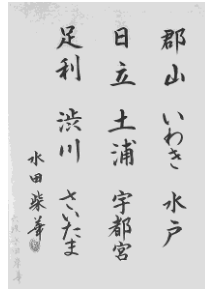 郡山 いわき 水戸
日立 土浦 宇都宮
足利 渋川 さいたま
水田柴華